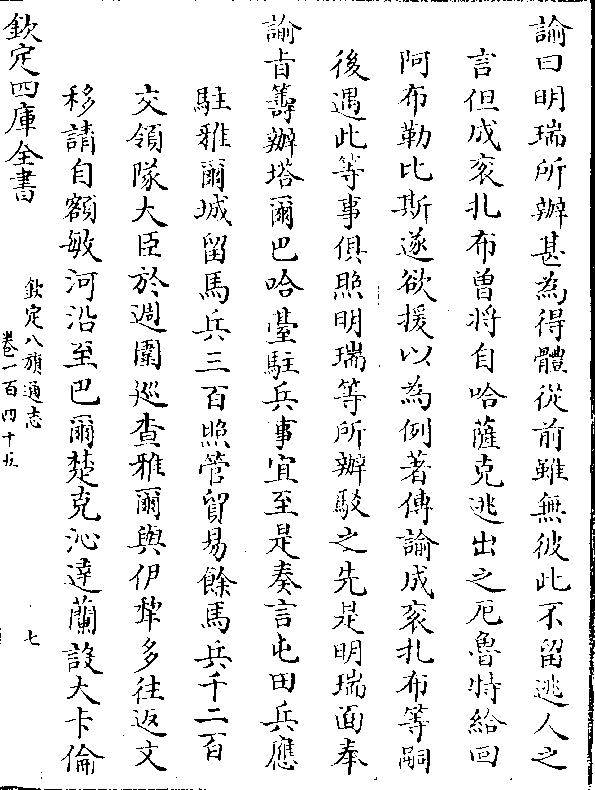 諭曰明瑞所辦甚為得體從前雖無彼此不留逃人之
言但成袞扎布曽將自哈薩克逃出之厄魯特給回
阿布勒比斯遂欲援以為例著傳諭成袞扎布等嗣
後遇此等事俱照明瑞等所辦駁之先是明瑞面奉
諭旨籌辦塔爾巴哈臺駐兵事宜至是奏言屯田兵應
駐雅爾城留馬兵三百照管貿易餘馬兵千二百
交領隊大臣於週圍廵查雅爾與伊犂多往返文
移請自額敏河沿至巴爾楚克沁達蘭設大卡倫
欽定四庫全書
欽定八旗通志
卷一百四十五
七